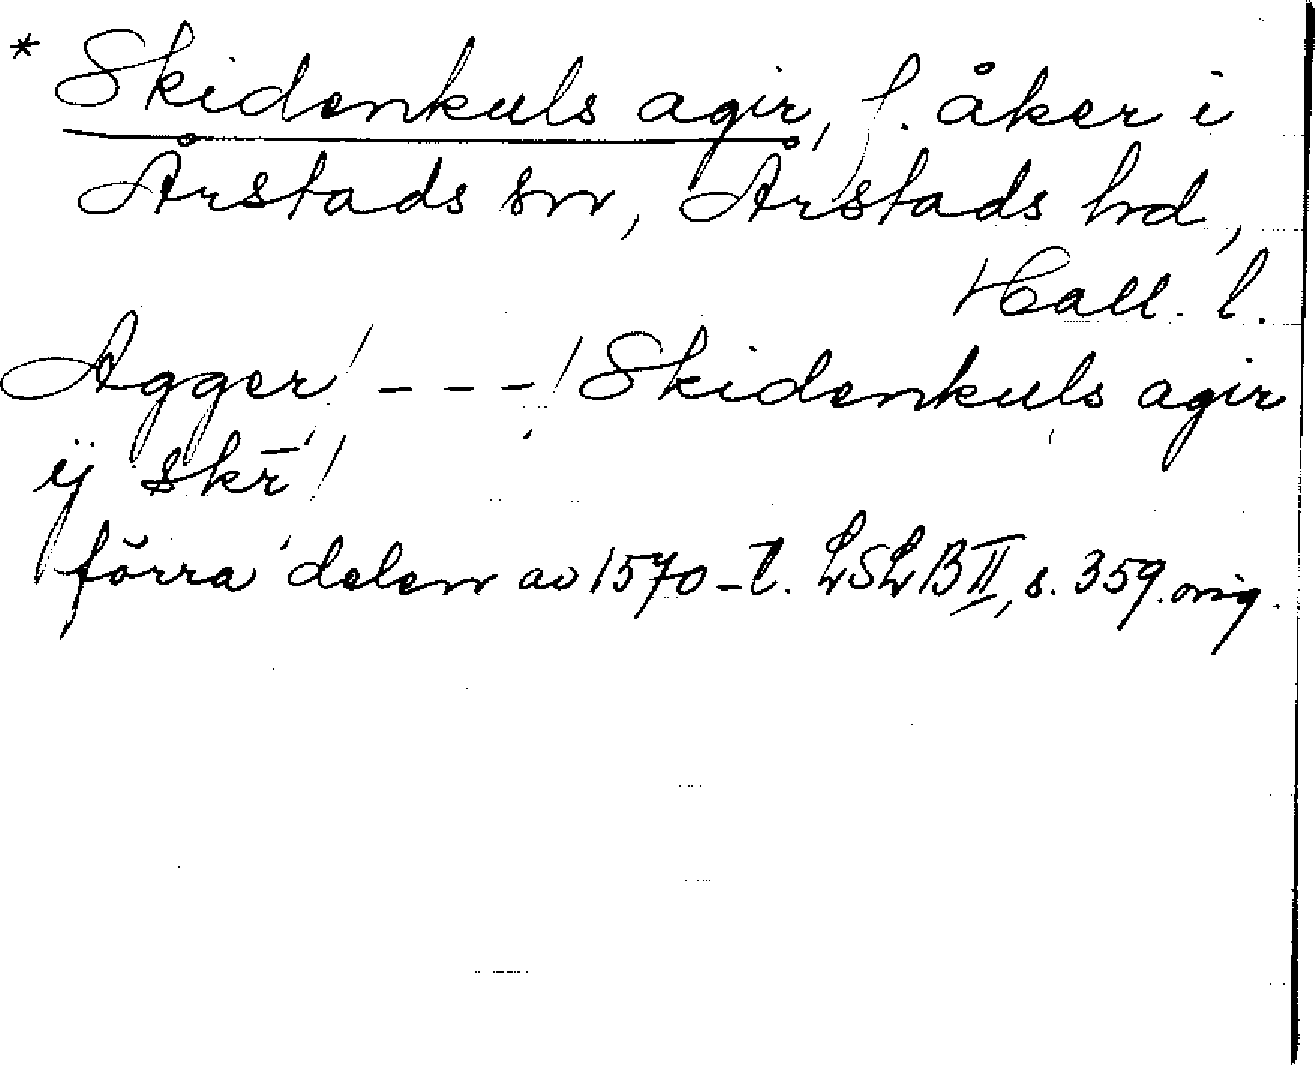 * Skidenkuls agir, f. åker i
Årstads sn, Årstads hd,
Hall. l.
Agger / - - - / Skidenkuls agir
ÿ skr̄ /
förra delen av 1570-t. LSLB II, s. 359. orig.